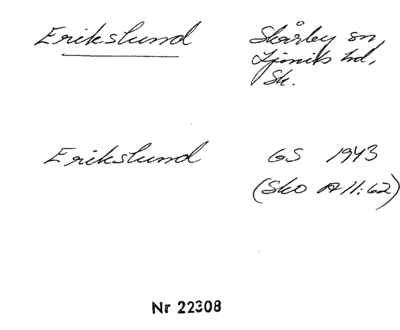 Erikslund Skårby sn,
Ljunits hd,
Sk.
Erikslund GS 1943
(Sko A11:62)
Nr 22308